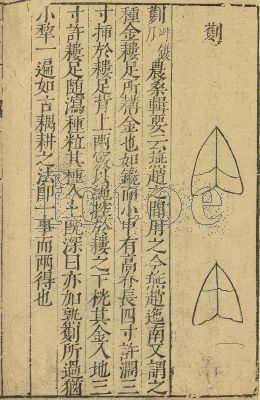 劐
劐農桑輯要云燕趙之間用之今燕趙迤南又謂之
種金耬足所耩金也如鐴而小中有高脊長四寸許闊三
寸插於耬足背上兩竅以繩控於耬之下桄其金入地三
寸許耬足隨瀉種粒其種入土既深田亦加熟劐所過猶
小犂一遍如古耦耕之法即一事而兩得也